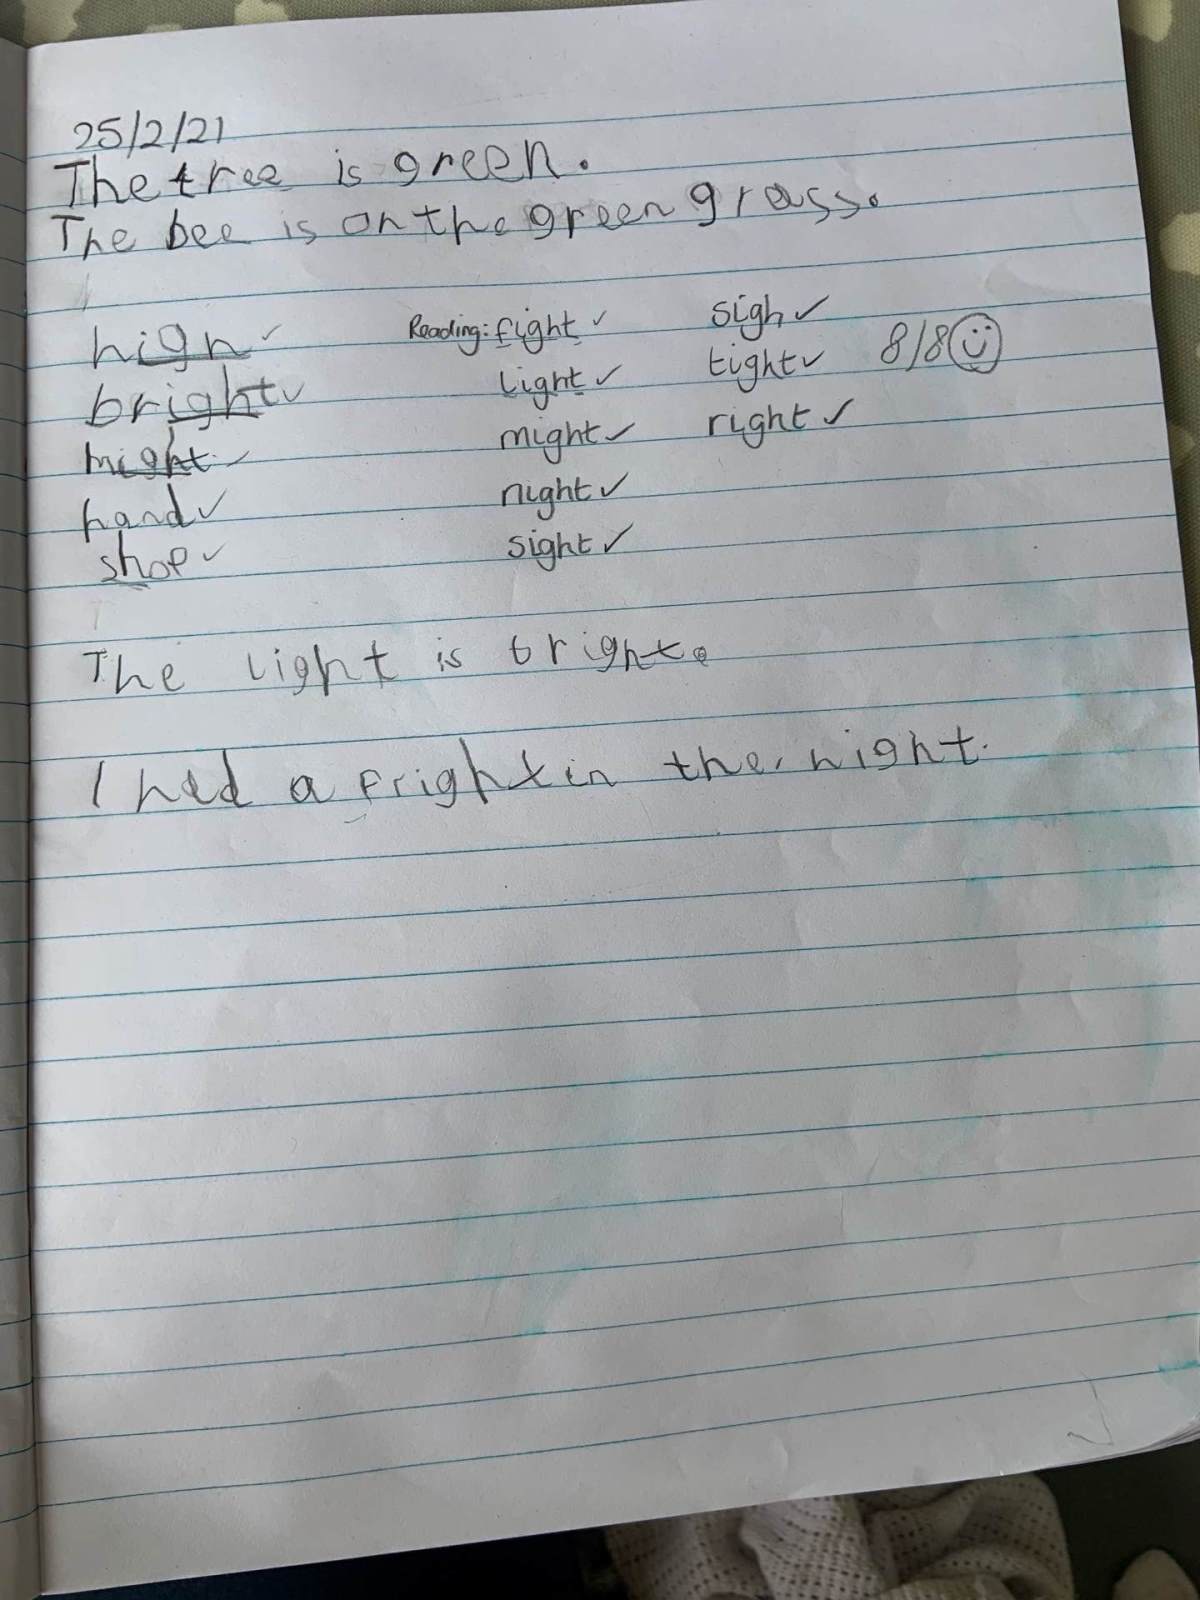 25/2/21
The tree is green.
The bee is on the green grass.
high ✓ Reading: fight ✓ sigh ✓
bright ✓ light ✓ tight ✓ 8/8 ☺
might ✓ might ✓ right ✓
hand ✓ night ✓
shop ✓ sight ✓
The light is bright.
I had a fright in the night.